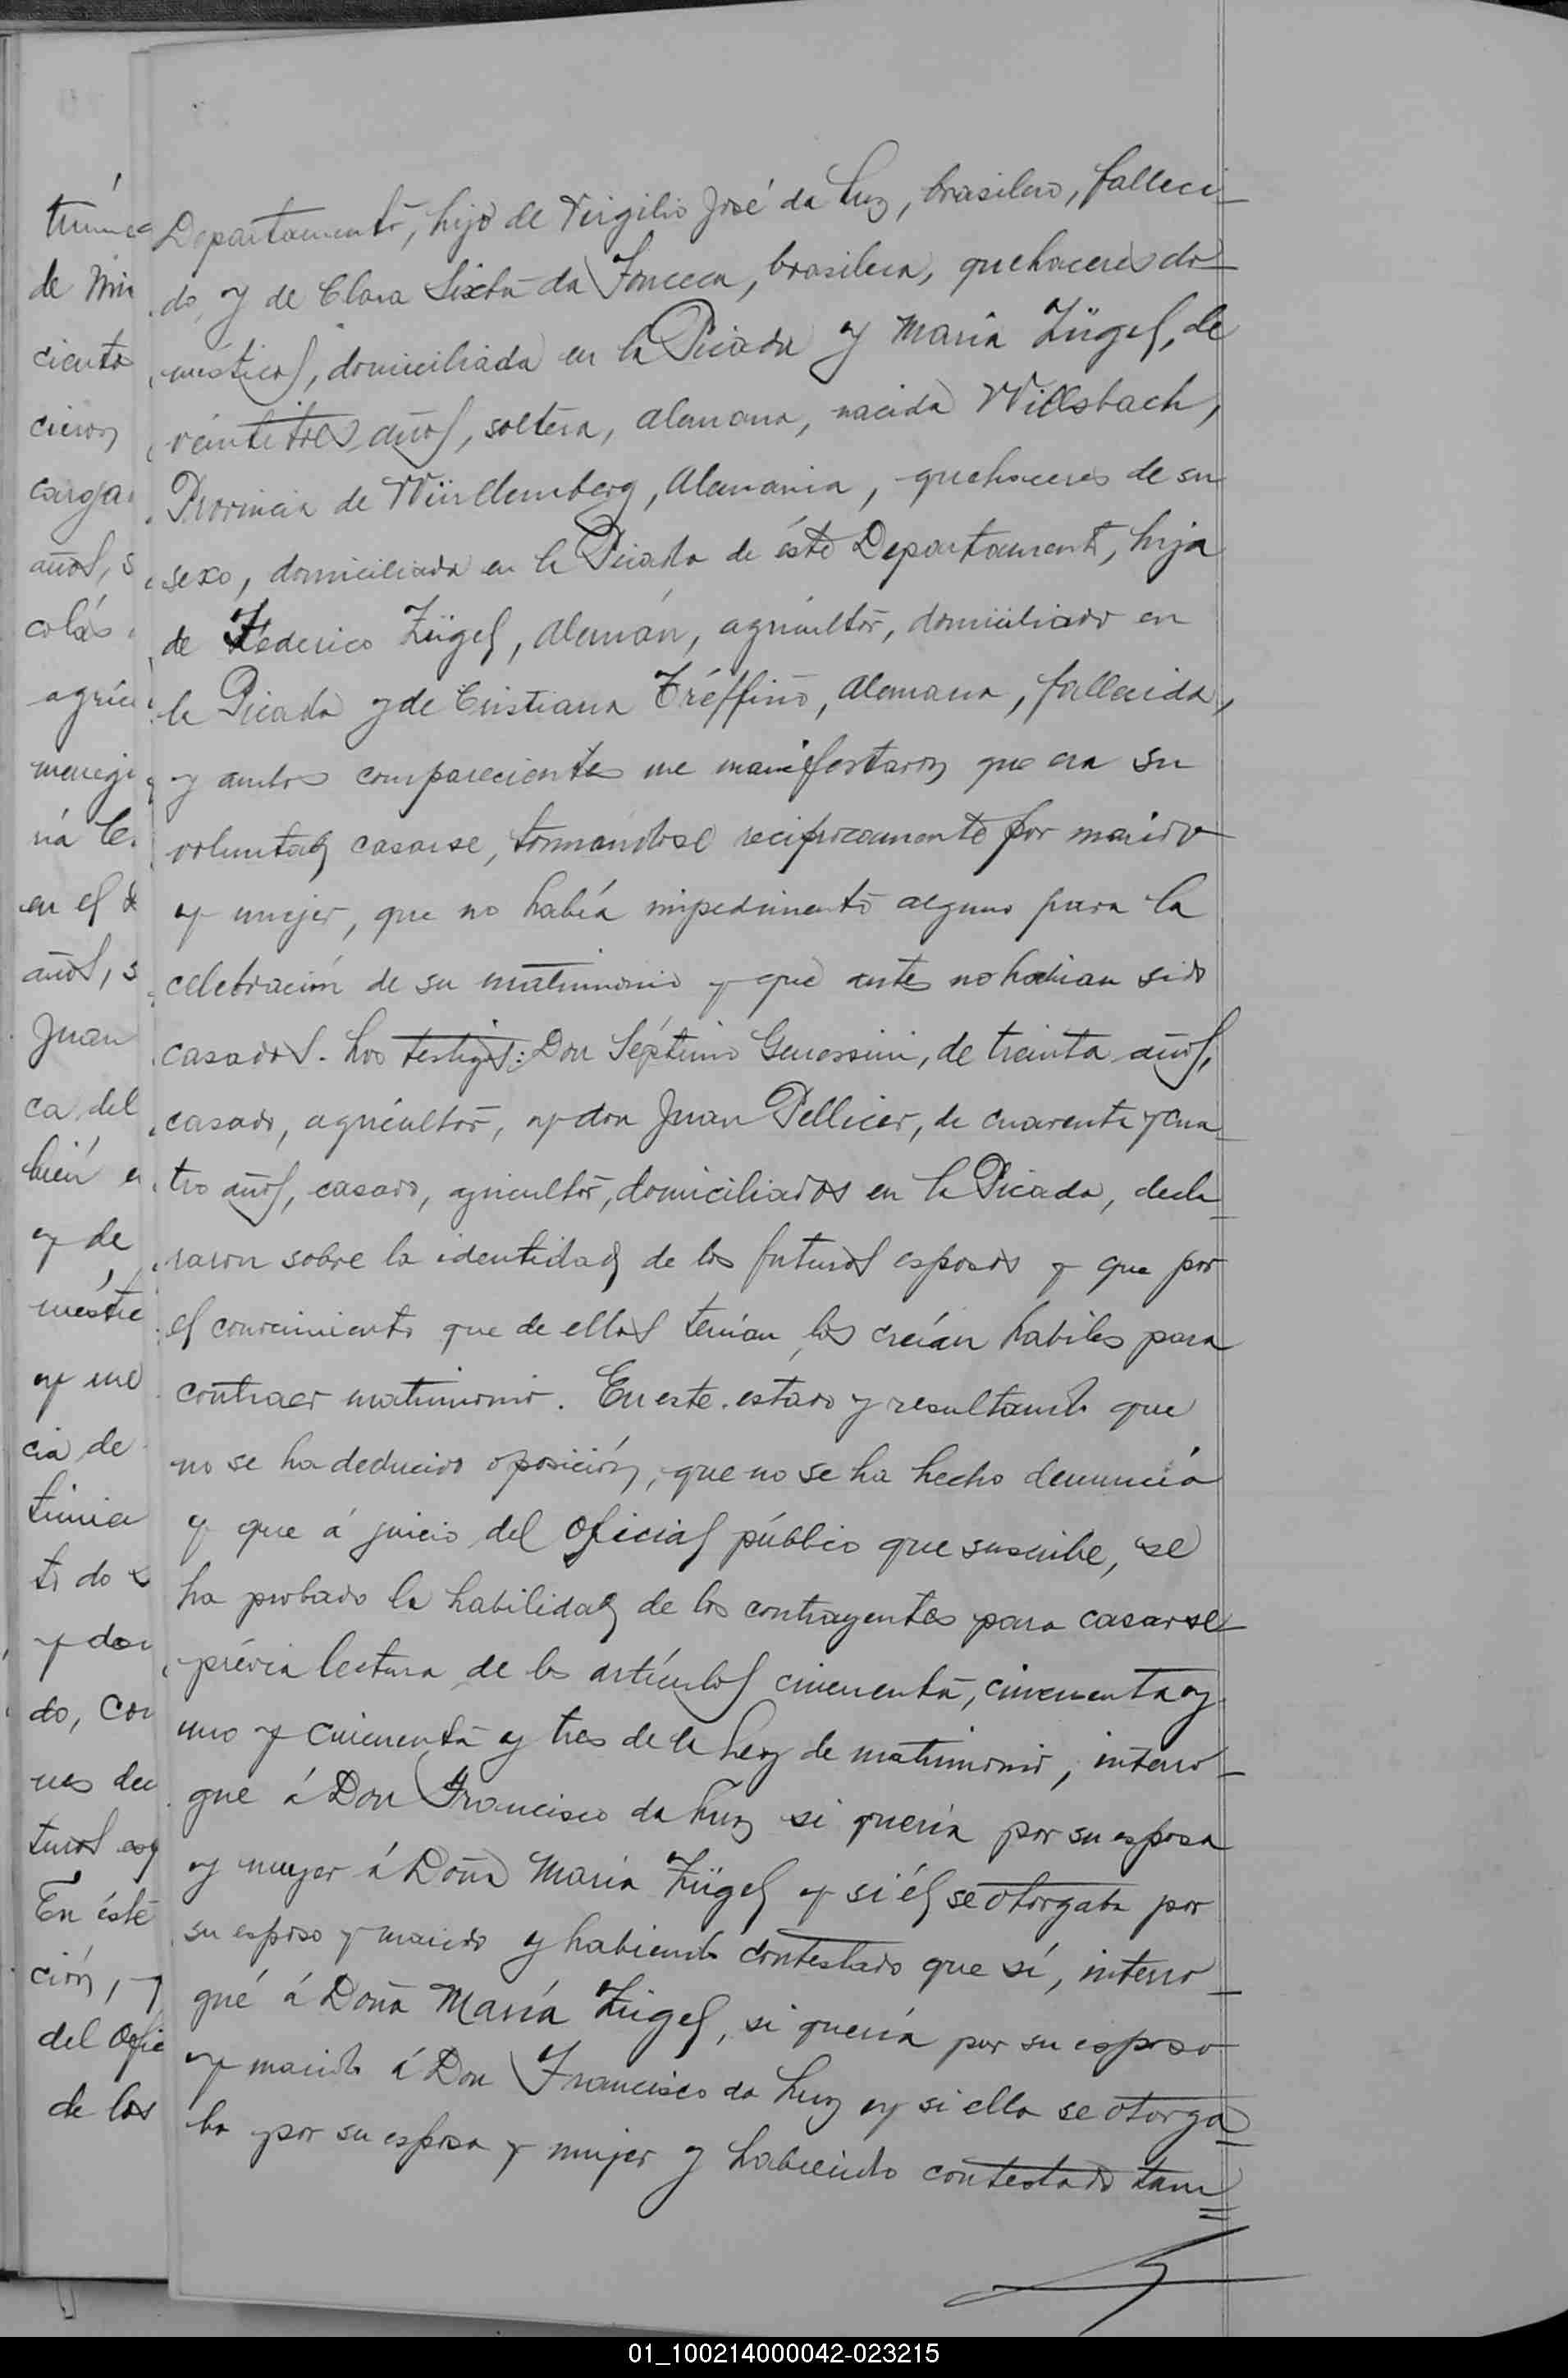 Departamento, hijo de Virgilio José da Luz, brasilero, falleci-
do, y de Clara Sixta da Fonceca, brasilera, quehaceres do-
mésticos, domiciliada en la Picada y María Zügel, de
veintitres años, soltera, alemana, nacida Willsbach,
Provincia de Württemberg, Alemania, quehaceres de su
sexo, domiciliada en la Picada de éste Departamento, hija
de Federico Zügel, alemán, agricultor, domiciliado en
la Picada y de Cristiana Tréffino, alemana, fallecida,
y ambos comparecientes me manifestaron que era su
voluntad casarse, tomándose recíprocamente por marido
y mujer, que no había impedimento alguno para la
celebración de su matrimonio y que antes no habian sido
casados. Los testigos: Don Séptimo Genessini, de treinta años,
casado, agricultor, y don Juan Pellicer, de cuarenta y cua-
tro años, casado, agricultor, domiciliados en la Picada, decla-
raron sobre la identidad de los futuros esposos y que por
el conocimiento que de ellos tenían, los creían habiles para
contraer matrimonio. En este estado y resultando que
no se ha deducido oposición, que no se ha hecho denuncia
y que á juicio del Oficial público que suscribe, se
ha probado la habilidad de los contrayentes para casarse
prévia lectura de los artículos cincuenta, cincuenta y
uno y cincuenta y tres de la Ley de matrimonio, interro-
gue á Don Francisco da Luz si quería por su esposa
y mujer á Doña María Zügel y si él se otorgaba por
su esposo y marido y habiendo contestado que sí, interro-
gué á Doña María Zügel, si quería por su esposo
y marido á Don Francisco da Luz y si ella se otorga-
ba por su esposa y mujer y habiendo contestado tam=
01_100214000042-023215